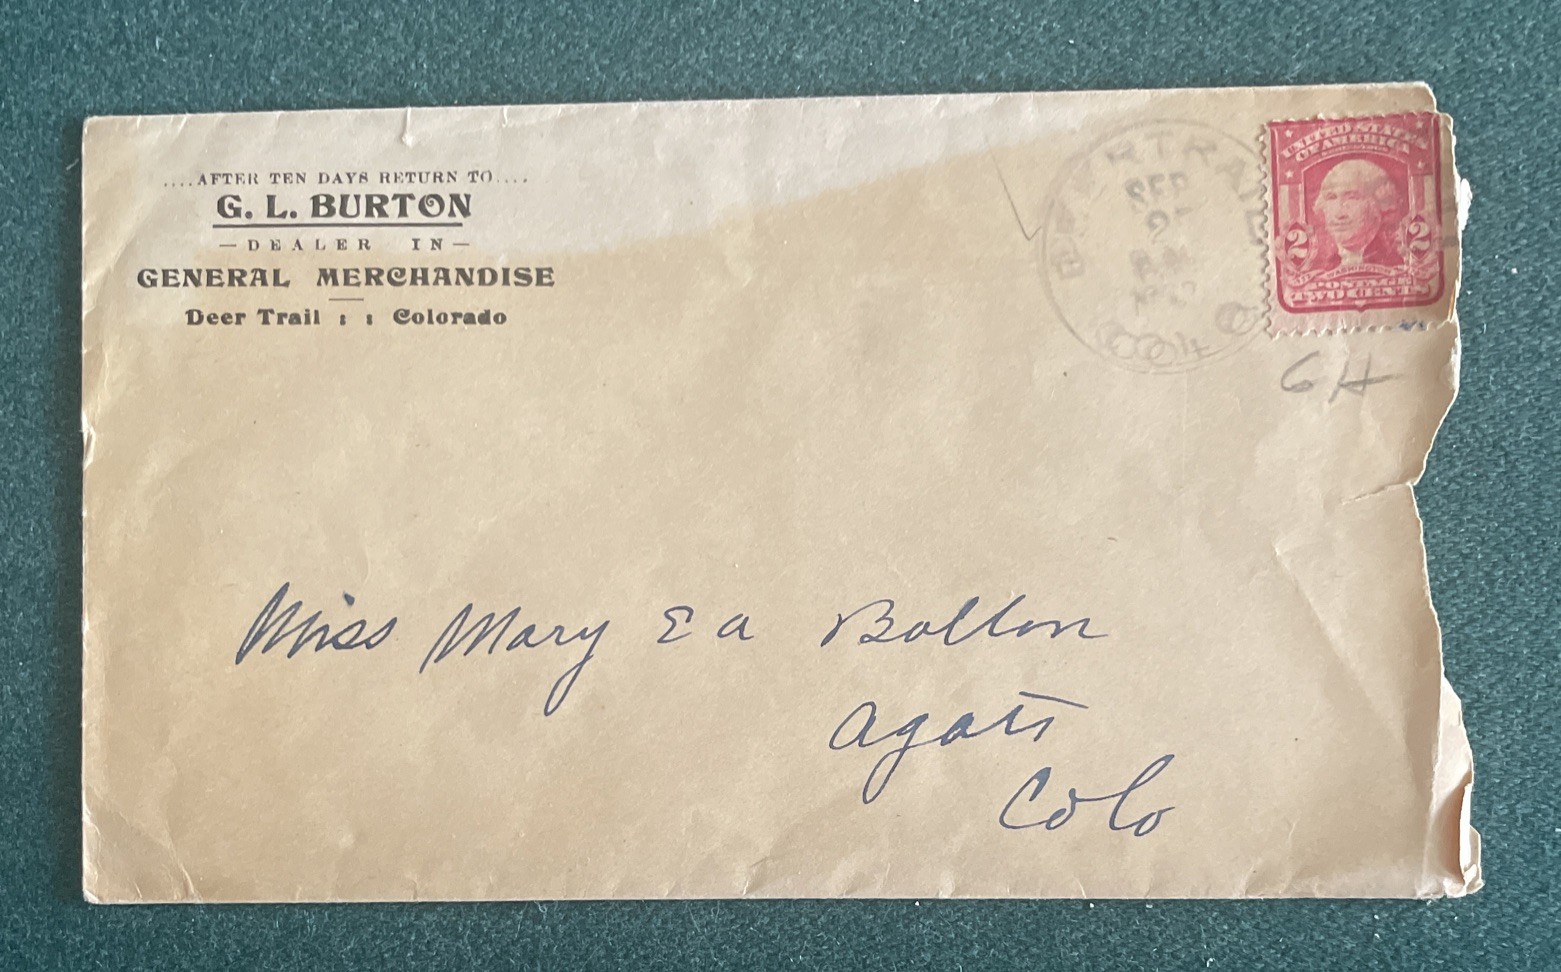 ....AFTER TEN DAYS RETURN TO....
G. L. BURTON
—DEALER IN—
GENERAL MERCHANDISE
Deer Trail : : Colorado
DEER TRAIL
SEP
UNITED STATES
OF AMERICA
2 2
WASHINGTON
POSTAGE
TWO CENTS
Miss Mary E a Bolton
Colo